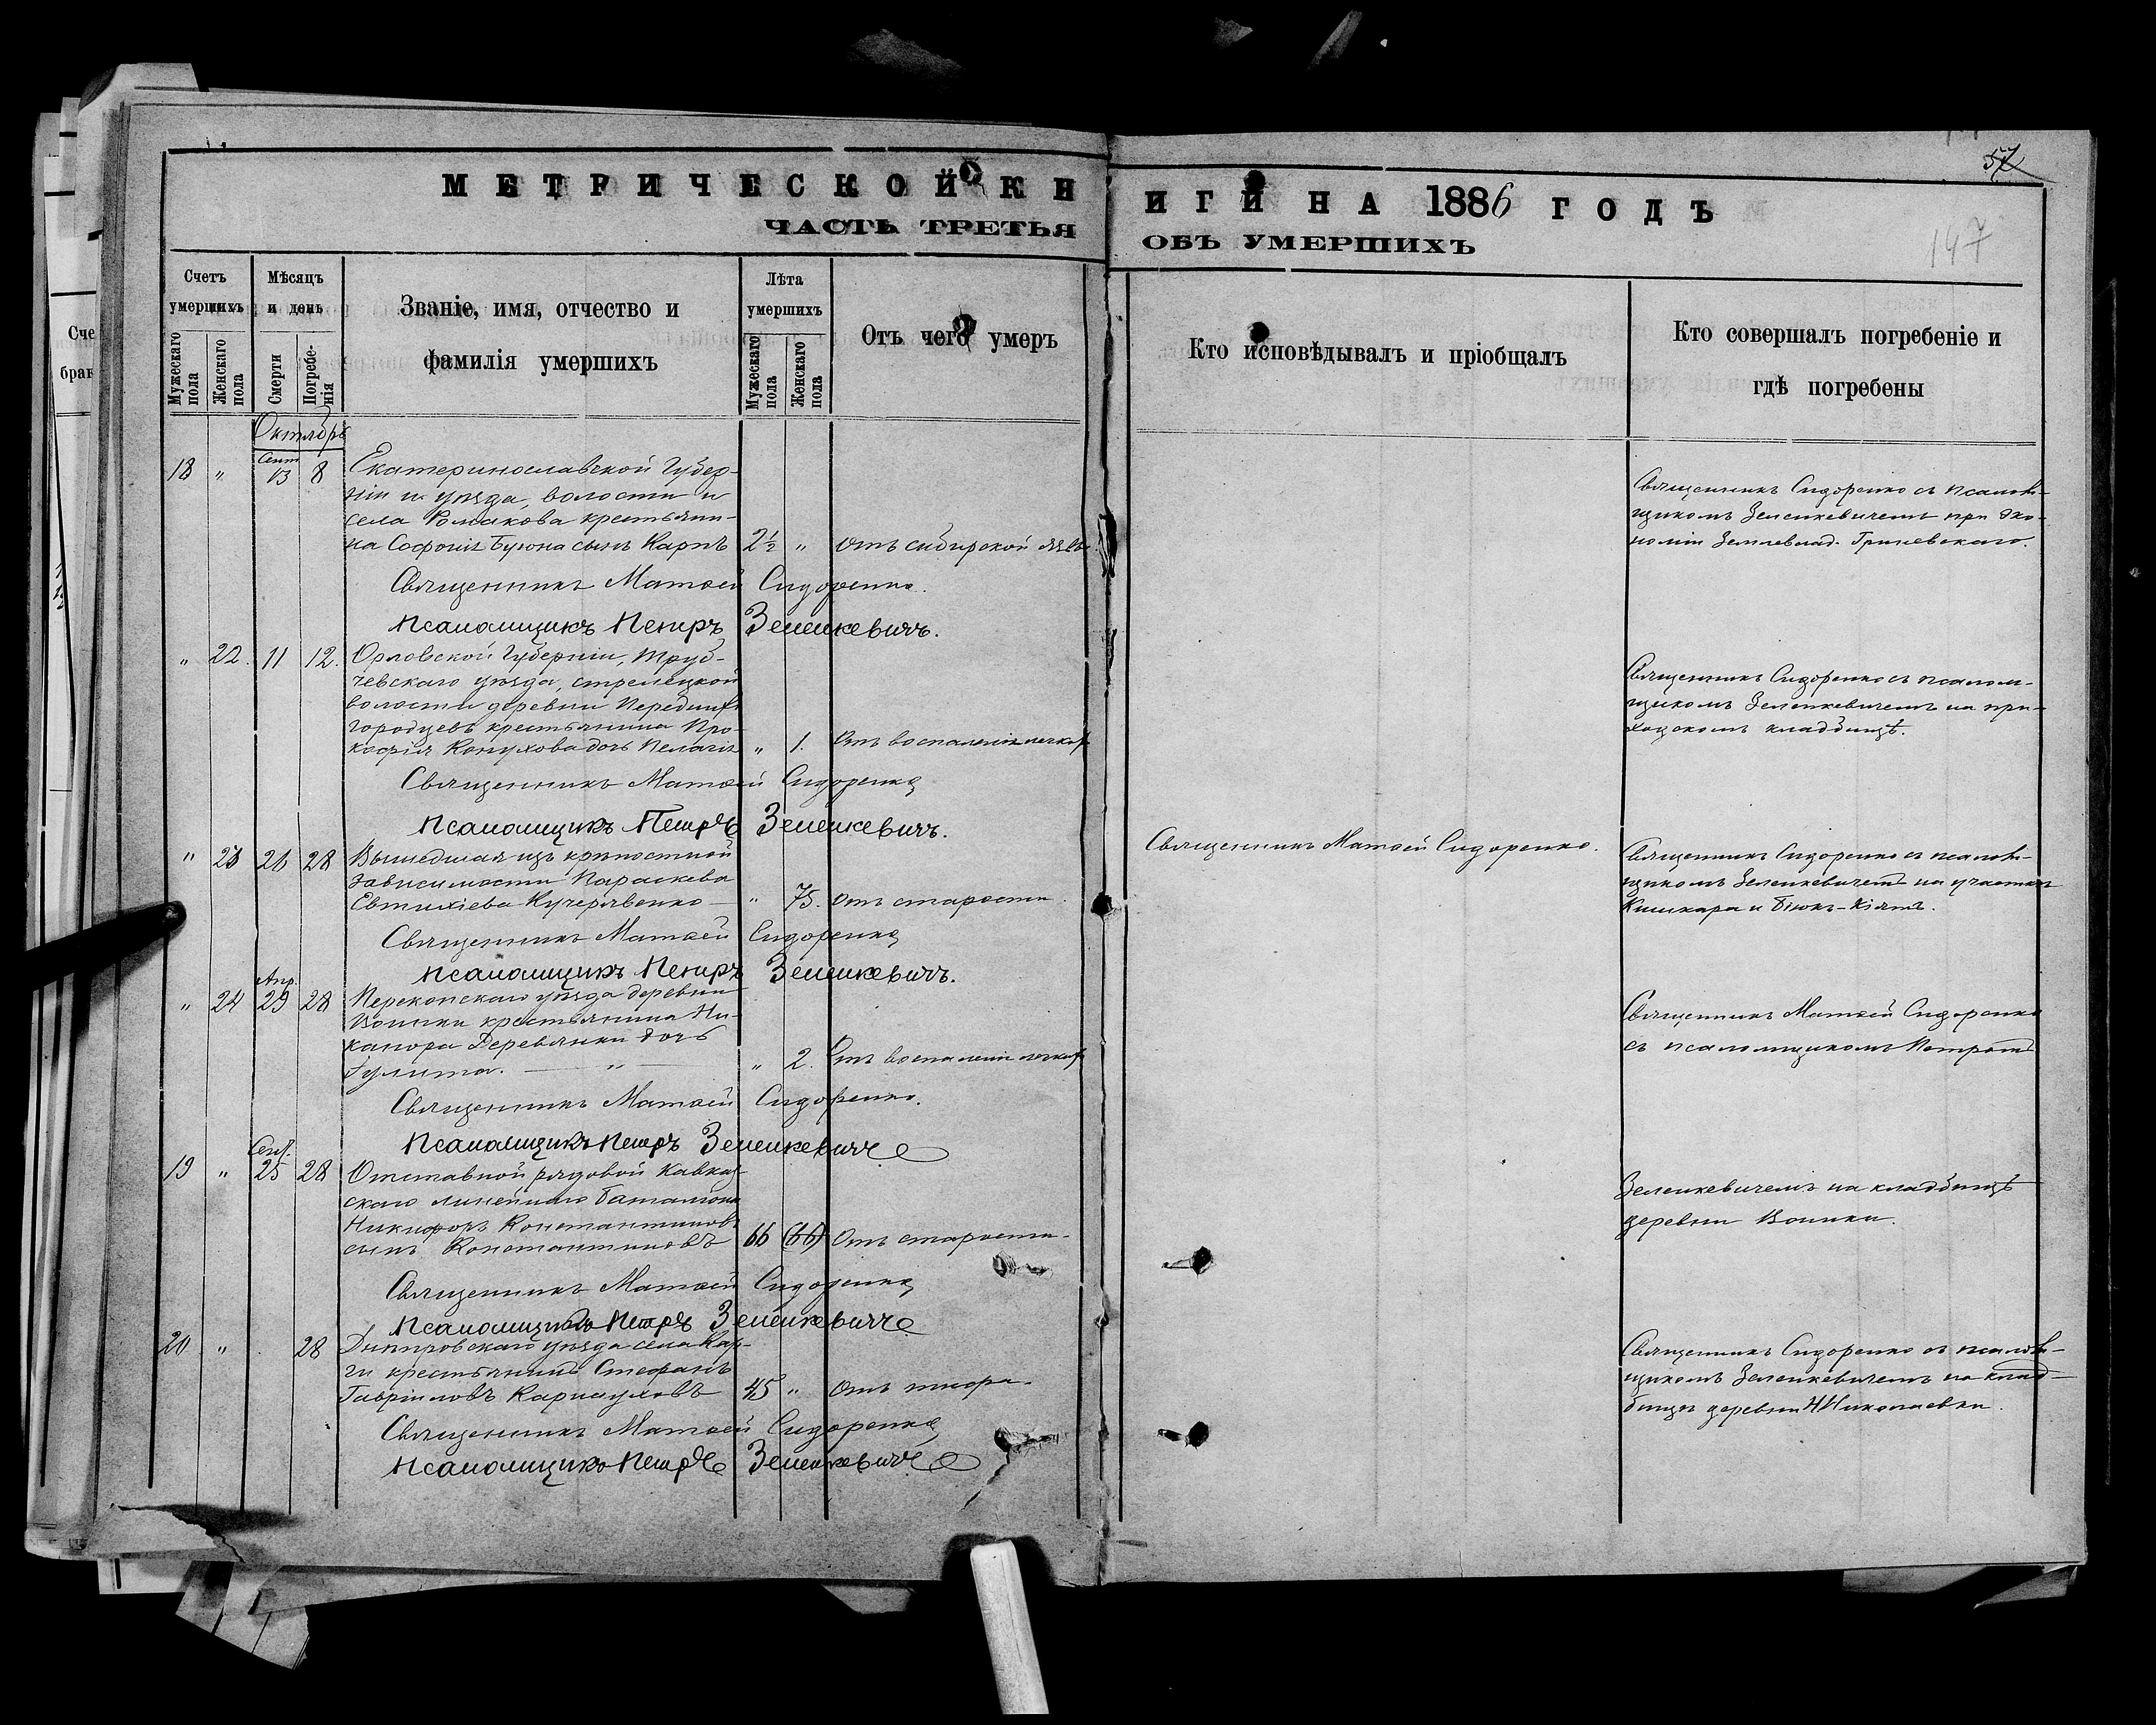 57
147
МЕТРИЧЕСКОЙ КНИГИ НА 1886 ГОДЪ
ЧАСТЬ ТРЕТЬЯ ОБЪ УМЕРШИХЪ
Счетъ умершихъ
Мужескаго пола
Женскаго пола
Мѣсяцъ и день
Смерти
Погребенія
Званіе, имя, отчество и
фамилія умершихъ
Лѣта умершихъ
Мужескаго пола
Женскаго пола
Отъ чего умеръ
Кто исповѣдывалъ и пріобщалъ
Кто совершалъ погребеніе и
гдѣ погребены
Октябрь
Сент
18 " 13 8 Екатеринославской Губер-
ніи и уѣзда, волости и
села Романкова крестьяни-
на Софонія Буюна сынъ Карпъ 2½ " Отъ сибирской язвы.
Священникъ Матѳей Сидоренко.
Псаломщикъ Петръ Зеленкевичъ.
Священникъ Сидоренко съ псалом-
щикомъ Зеленкевичемъ при эко-
номіи Землевлад. Гриневскаго.
" 22. 11 12. Орловской Губерніи, Труб-
чевскаго уѣзда, стрелецкой
волости деревни
Городцевъ крестьянина Про-
кофія Конухова дочь Пелагія " 1. Отъ воспаленія легких
Священникъ Матѳей Сидоренко
Псаломщикъ Петръ Зеленкевичъ.
Священникъ Сидоренко съ псалом-
щикомъ Зеленкевичемъ на при-
ходскомъ кладбищѣ.
" 23 26 28 Вышедшая изъ крѣпостной
зависимости Параскева
Евтихіева Кучерявенко " 75. Отъ старости.
Священникъ Матѳей Сидоренко
Псаломщикъ Петръ Зеленкевичъ.
Священникъ Матѳей Сидоренко.
Священникъ Сидоренко съ псалом-
щикомъ Зеленкевичемъ на участкѣ
и Біюкъ-Кіятъ.
Апр.
" 24 29 28 Перекопскаго уѣзда деревни
Воинки крестьянина Ни-
канора Деревянки дочь
Іулита. " " 2. Отъ воспаленія легких
Священникъ Матѳей Сидоренко.
Псаломщикъ Петръ Зеленкевичъ
Священникъ Матѳей Сидоренко
съ псаломщикомъ Петромъ
Сент.
19 " 25 28 Отставной рядовой Кавказ-
скаго линейнаго баталіона
Никифоръ Константиновъ
сынъ Константиновъ 66 (66) Отъ старости.
Священникъ Матѳей Сидоренко
Псаломщикъ Петръ Зеленкевичъ
Зеленкевичемъ на кладбищѣ
деревни Воинки.
20 " 28 Днѣпровскаго уѣзда села Кар-
ги крестьянинъ Стефанъ
Гавріиловъ Карнауховъ 45 " Отъ тифа.
Священникъ Матѳей Сидоренко
Псаломщикъ Петръ Зеленкевичъ
Священникъ Сидоренко съ псалом-
щикомъ Зеленкевичемъ на клад-
бищѣ деревни Н Николаевки.